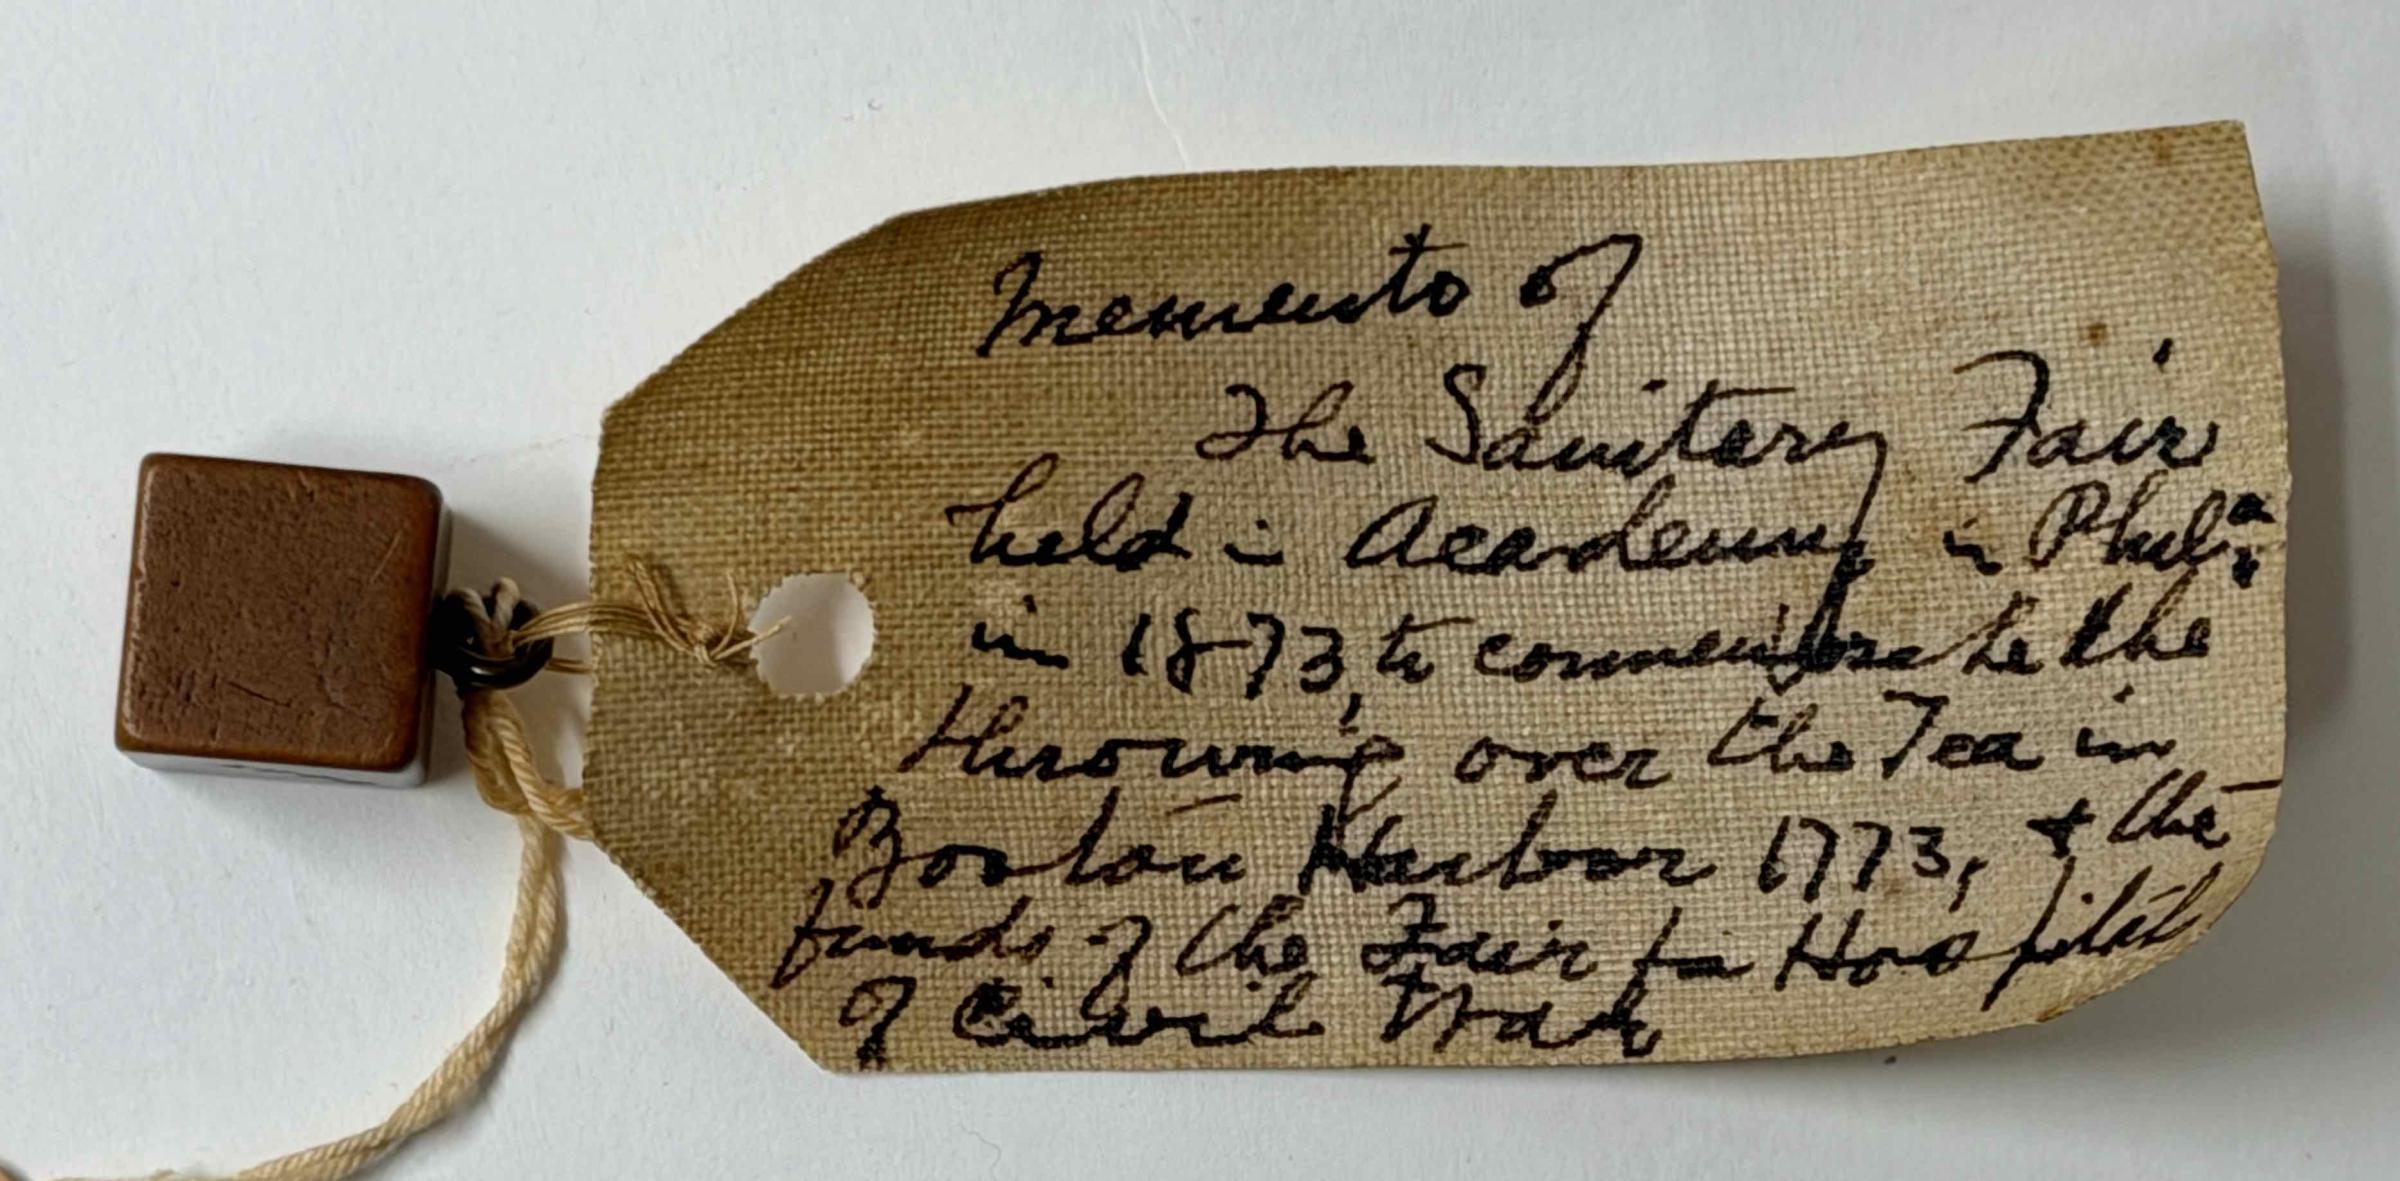 Memento of
The Sanitary Fair
held in Academy in Phila
in 1873, to commemorate the
throwing over the Tea in
Boston Harbor 1773, + the
funds of the Fair for Hospitals
of Civil War